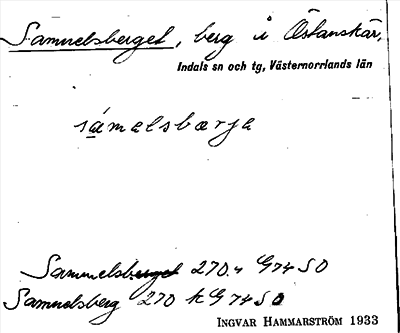 Samuelsberget, berg i Östanskär,
Indals sn och tg, Västernorrlands län
sámalsbærja
Sammelsberget 270.4 G74SO
Samuelsberg 270 k G74SO
INGVAR HAMMARSTRÖM 1933